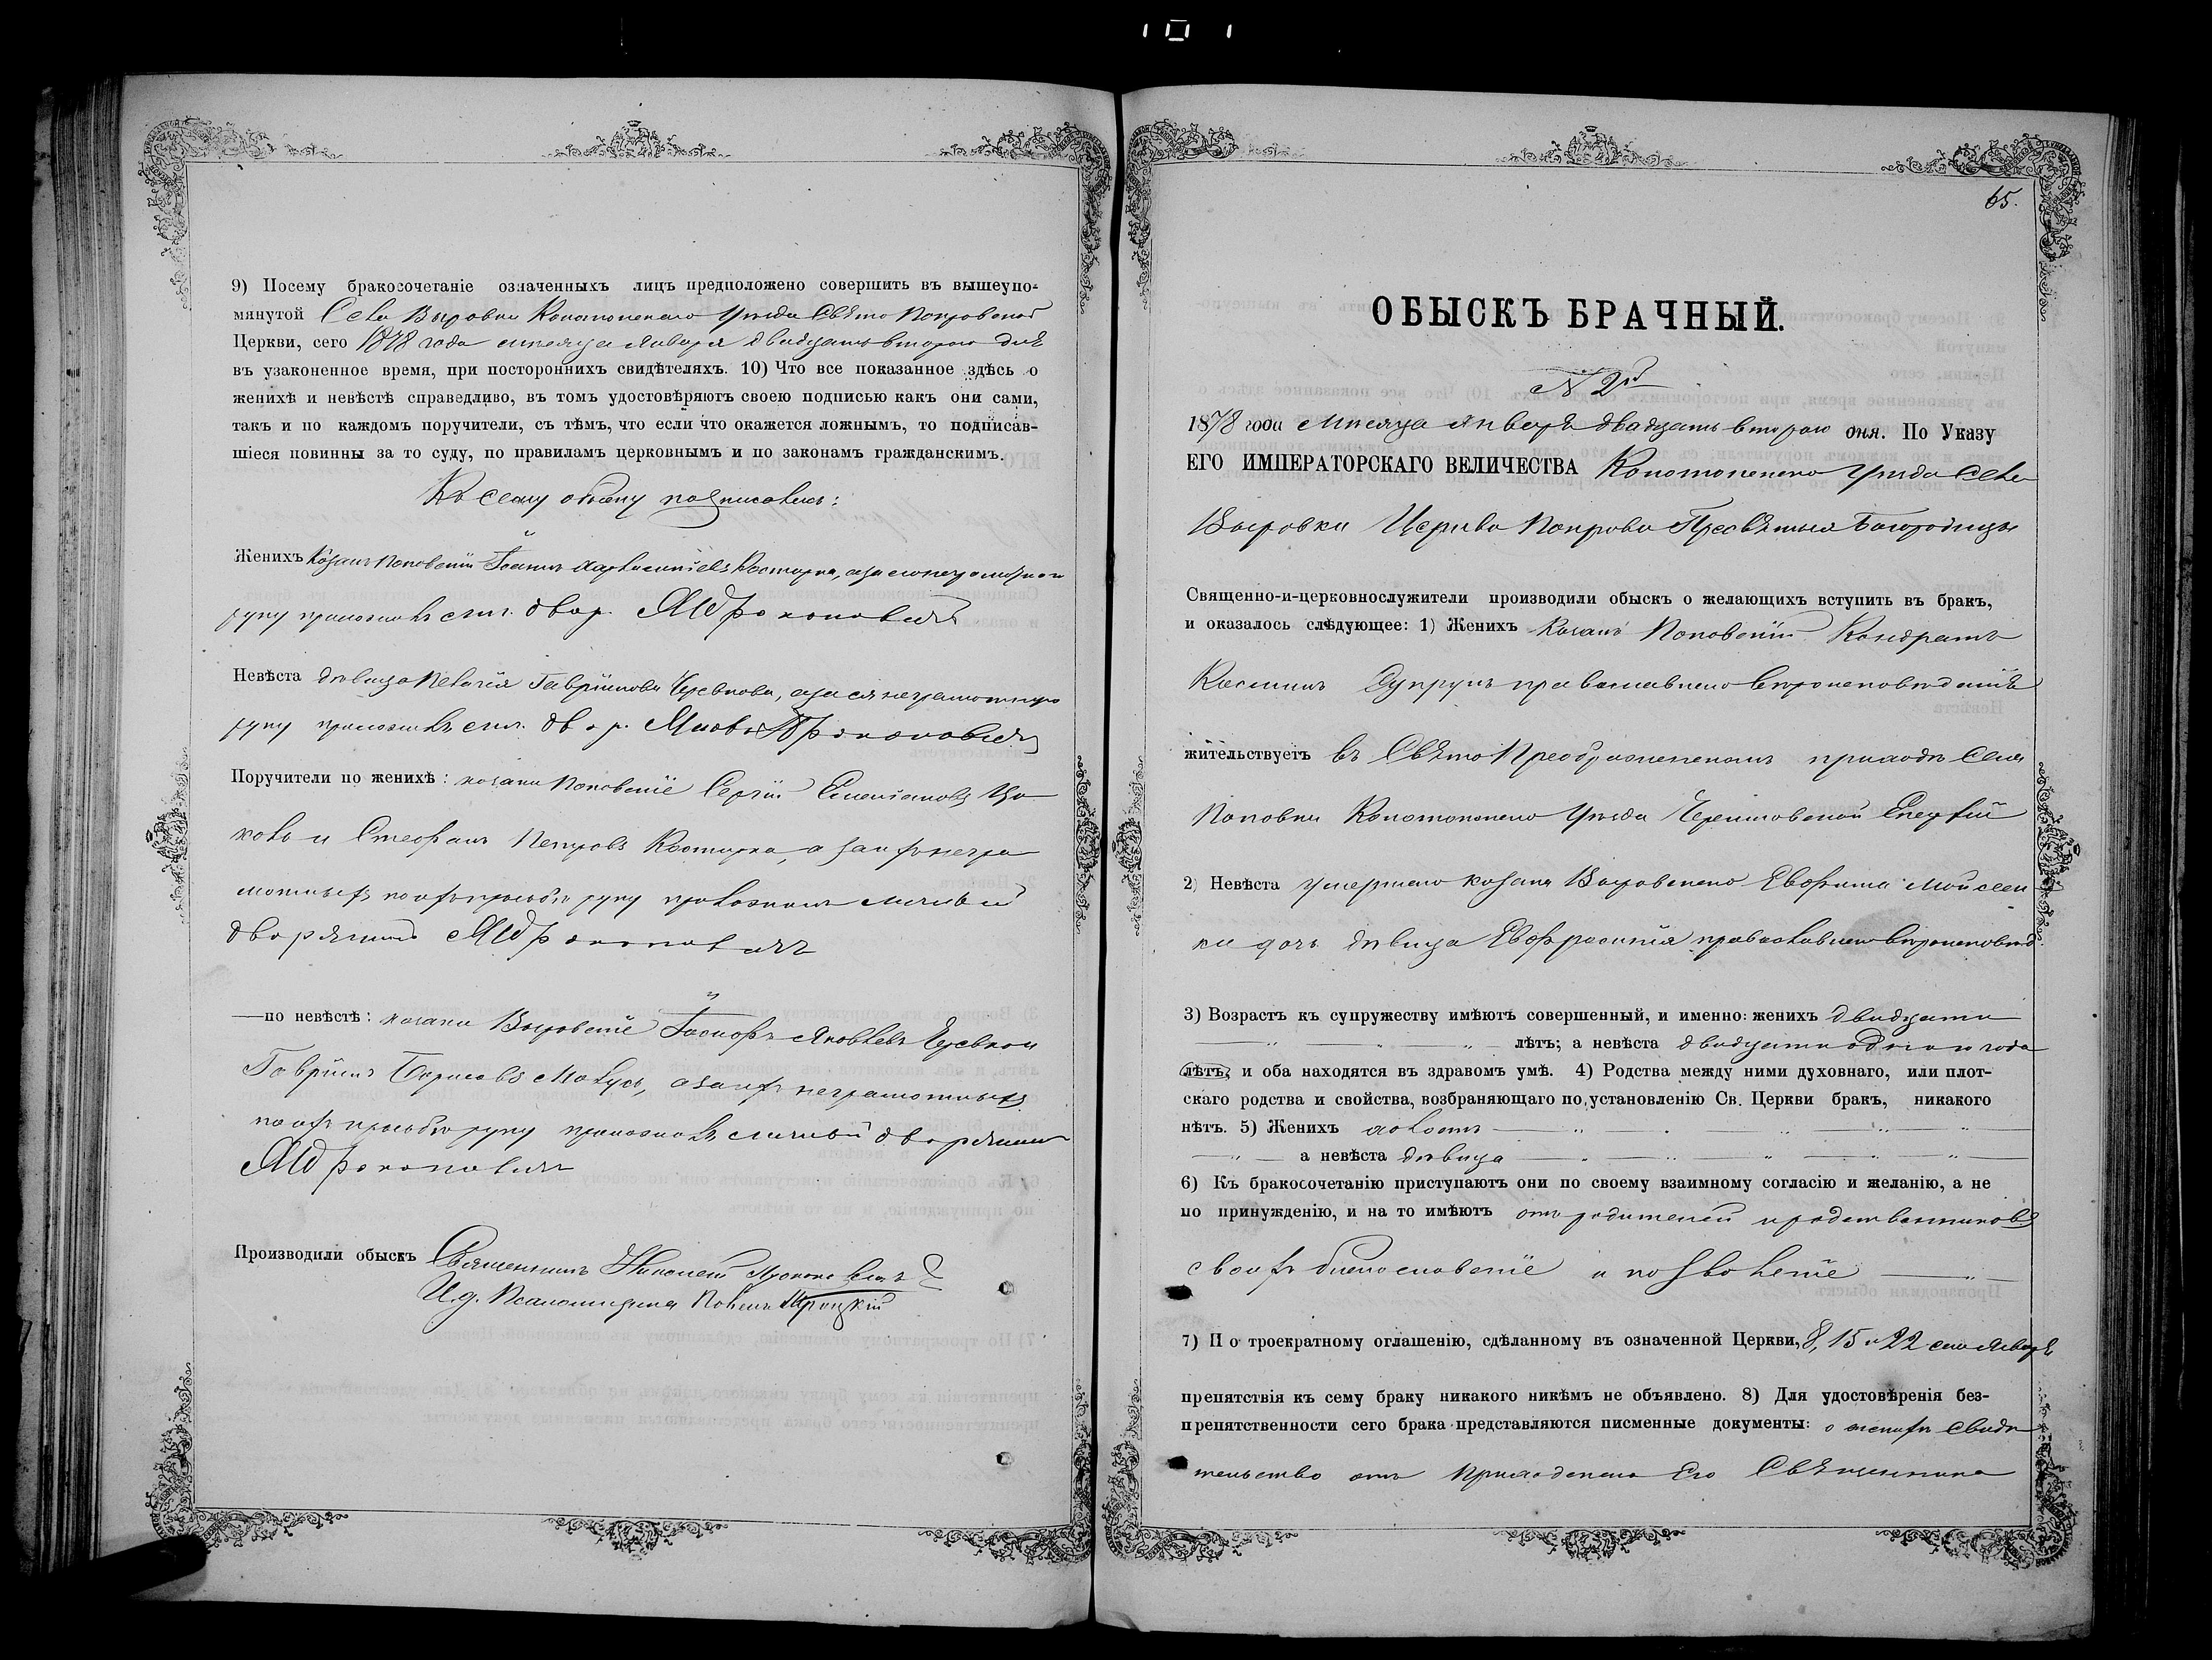 101
9) Посему бракосочетаніе означенныхъ лицъ предположено совершить въ вышеупо-
мянутой Села Выровки Конотопскаго уѣзда Свято Покровской
Церкви, сего 1878 года мѣсяца Января двадцать второго дня
въ узаконенное время, при постороннихъ свидѣтеляхъ. 10) Что все показанное здѣсь о
женихѣ и невѣстѣ справедливо, въ томъ удостовѣряютъ своею подписью какъ они сами,
такъ и по каждомъ поручители, съ тѣмъ, что если что окажется ложнымъ, то подписав-
шіеся повинны за то суду, по правиламъ церковнымъ и по законамъ гражданскимъ.
Къ сему обыску подписались:
Женихъ Козакъ Поповскій Іоаннъ Костирка, а за его неграмотнаго
руку приложилъ двор. Прокоповичъ
Невѣста дѣвица Пелагія Гавріилова а за ея неграмотную
руку приложилъ двор. Прокоповичъ
Поручители по женихѣ: козаки Поповскіе Сергій
и Стефанъ Петровъ Костирка, а за ихъ негра
мотныхъ по ихъ прозьбѣ руку приложилъ
дворянинъ Прокоповичъ
—по невѣстѣ: козаки Выровскіе Іосифъ Яковлевъ
Гавріилъ Борисовъ а за ихъ неграмотныхъ
по ихъ прозьбѣ руку приложилъ дворянинъ
Прокоповичъ
Производили обыскъ Священникъ Николай Прокоповичъ
И.д. Псаломщика Павелъ Троцкій
65.
ОБЫСКЪ БРАЧНЫЙ.
N 2й
1878 года Мѣсяца Января двадцать второго дня. По Указу
ЕГО ИМПЕРАТОРСКАГО ВЕЛИЧЕСТВА Конотопского уѣзда села
Выровки Церкви Покрова Пресвятыя Богородицы
Священно-и-церковнослужители производили обыскъ о желающихъ вступить въ бракъ,
и оказалось слѣдующее: 1) Женихъ Козакъ Поповскій Кондратъ
Супрунъ православного вѣроисповѣданія
жительствуетъ въ Свято Преображенскомъ приходѣ села
Поповки Конотопского уѣзда Черниговской Епархіи
2) Невѣста умершего козака Выровского Евфима Мойсеен
ки дочь дѣвица Евфросинія православного вѣроисповѣд.
3) Возрастъ къ супружеству имѣютъ совершенный, и именно: женихъ двадцати
лѣтъ; а невѣста двадцати одного года
лѣтъ, и оба находятся въ здравомъ умѣ. 4) Родства между ними духовнаго, или плот-
скаго родства и свойства, возбраняющаго по установленію Св. Церкви бракъ, никакого
нѣтъ. 5) Женихъ холостъ
а невѣста дѣвица
6) Къ бракосочетанію приступаютъ они по своему взаимному согласію и желанію, а не
по принужденію, и на то имѣютъ отъ родителей и родственниковъ
своихъ благословеніе и позволеніе
7) По троекратному оглашенію, сдѣланному въ означенной Церкви, 8, 15 и 22 сего Января
препятствія къ сему браку никакого никѣмъ не объявлено. 8) Для удостовѣренія без-
препятственности сего брака представляются писменные документы: о женихѣ свидѣ
тельство отъ Приходского Его Священника